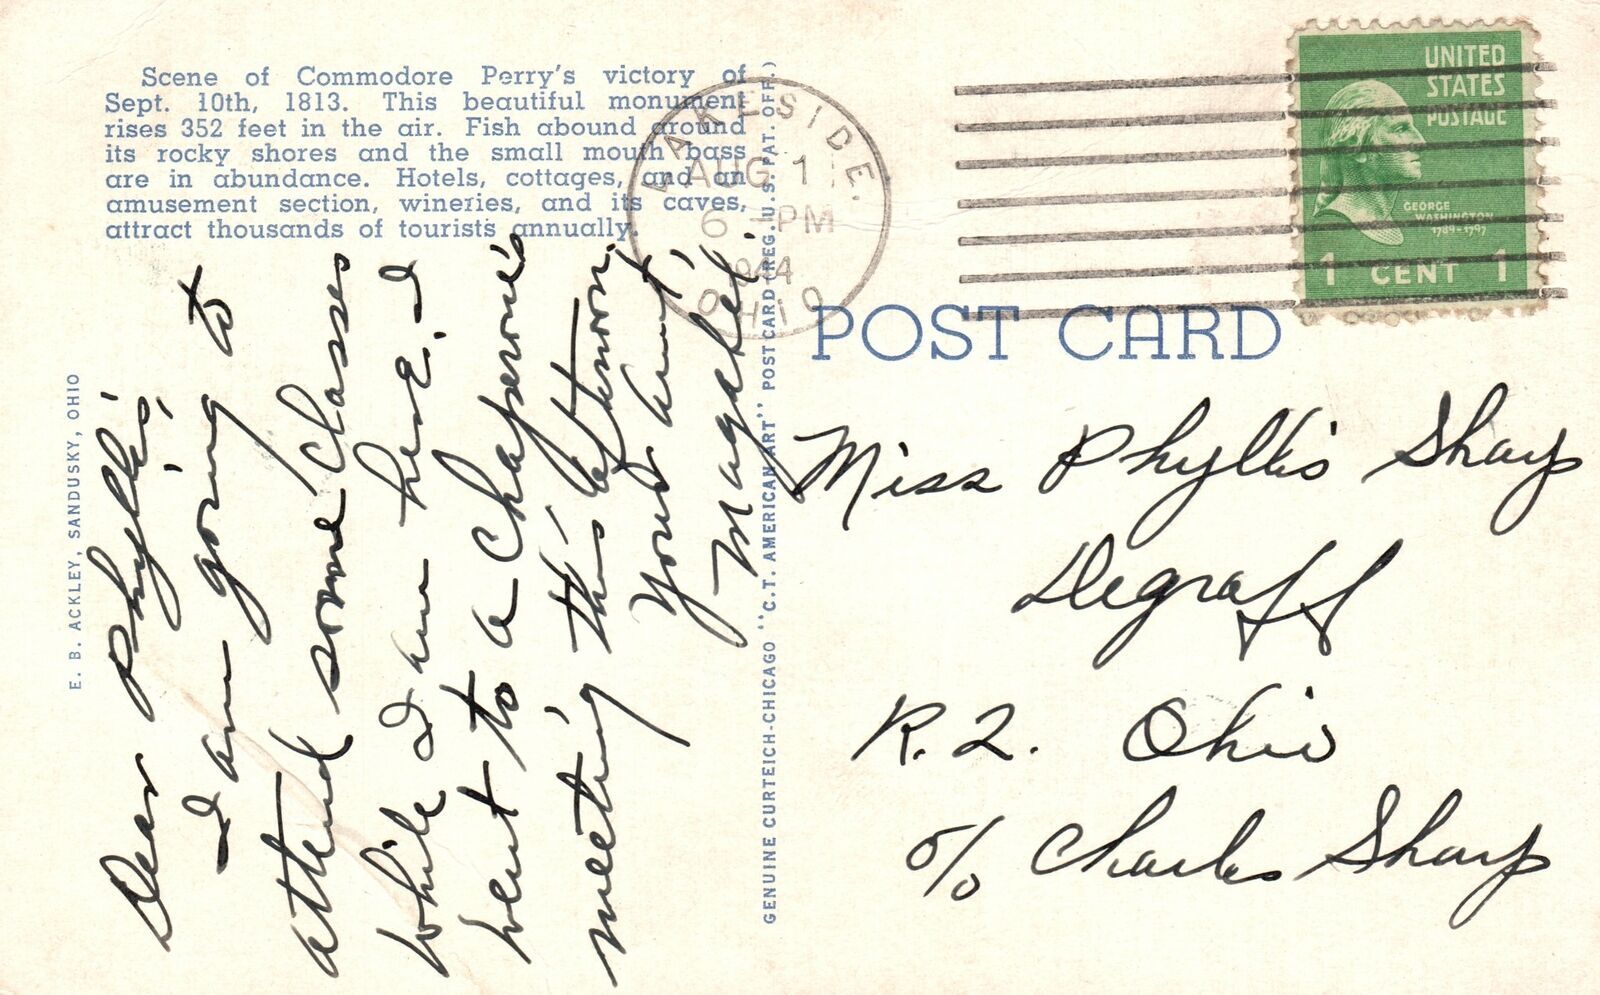 Scene of Commodore Perry's victory of
Sept. 10th, 1813. This beautiful monument
rises 352 feet in the air. Fish abound around
its rocky shores and the small mouth bass
are in abundance. Hotels, cottages, and an
amusement section, wineries, and its caves,
attract thousands of tourists annually.
E. B. ACKLEY, SANDUSKY, OHIO
Dear Phyllis,
I am going to
attend some classes
while I am here. I
went to a Chaperone's
meeting this afternoon.
Your aunt,
GENUINE CURTEICH-CHICAGO "C.T. AMERICAN ART" POST CARD (REG. U.S. PAT. OFF.)
LAKESIDE.
AUG 1
6 - PM
1944
OHIO
UNITED
STATES
POSTAGE
GEORGE
WASHINGTON
1789-1797
1 CENT 1
POST CARD
Miss Phyllis Sharp
Degraff
R. 2. Ohio
c/o Charles Sharp